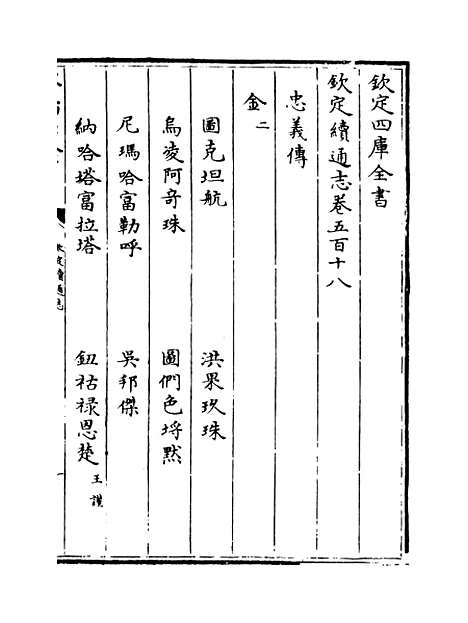 欽定四庫全書
欽定續通志卷五百十八
忠義傳
金二
圖克坦航
洪果玖珠
烏凌阿奇珠
圖們色埒默
尼瑪哈富勒呼
吳邦傑
納哈塔富拉塔
鈕祜禄恩楚
王謹
欽定續通志